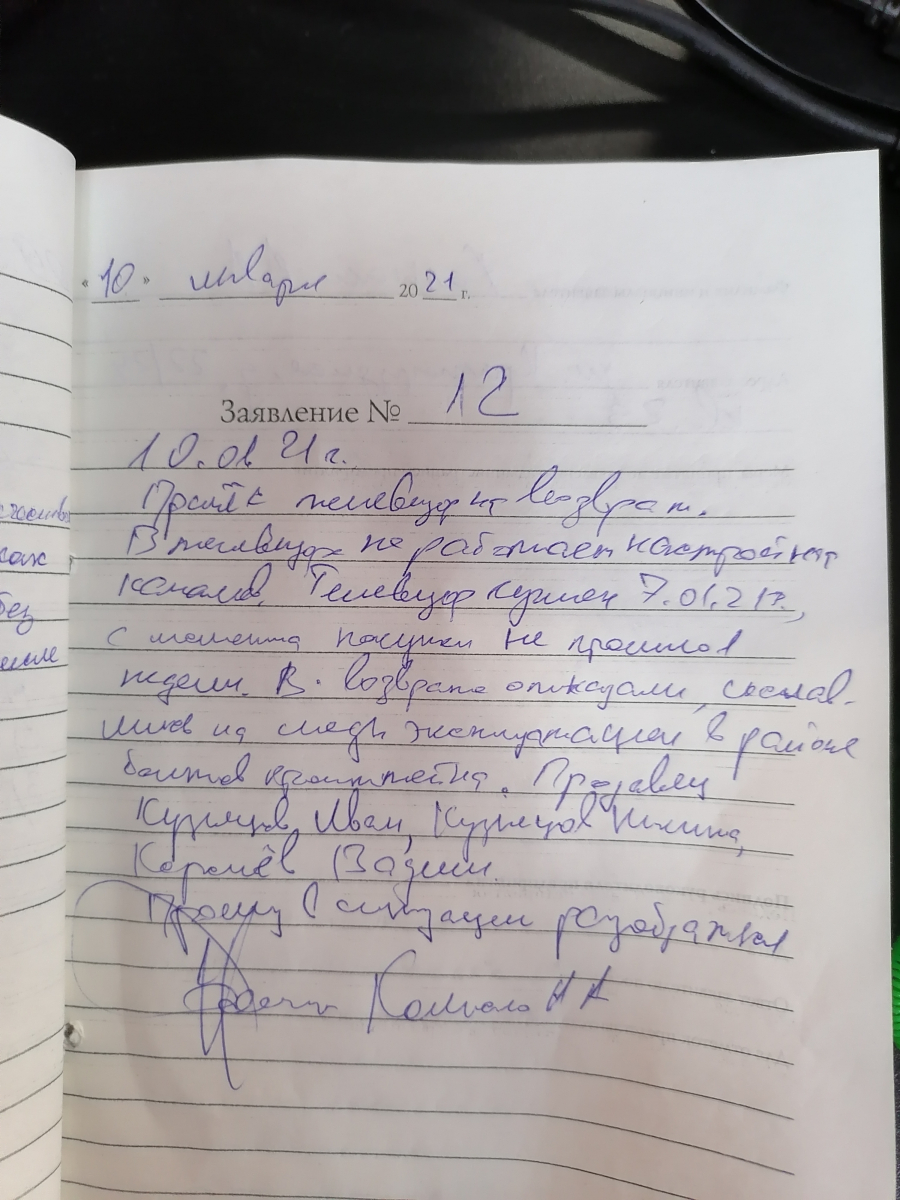 «10» января 2021 г.
Заявление № 12
10.01 21 г.
телевизор на возврат.
В телевизоре не работает настройка
каналов. Телевизор куплен 7.01.21г.,
с момента покупки не прошло
недели. В. возврате отказали, сослав-
шись на следы эксплуатации в районе
болтов кронштейна. Продавец
Кузнецов Иван, Кузнецов Никита,
Королёв Вадим.
Прошу в ситуации разобраться
без